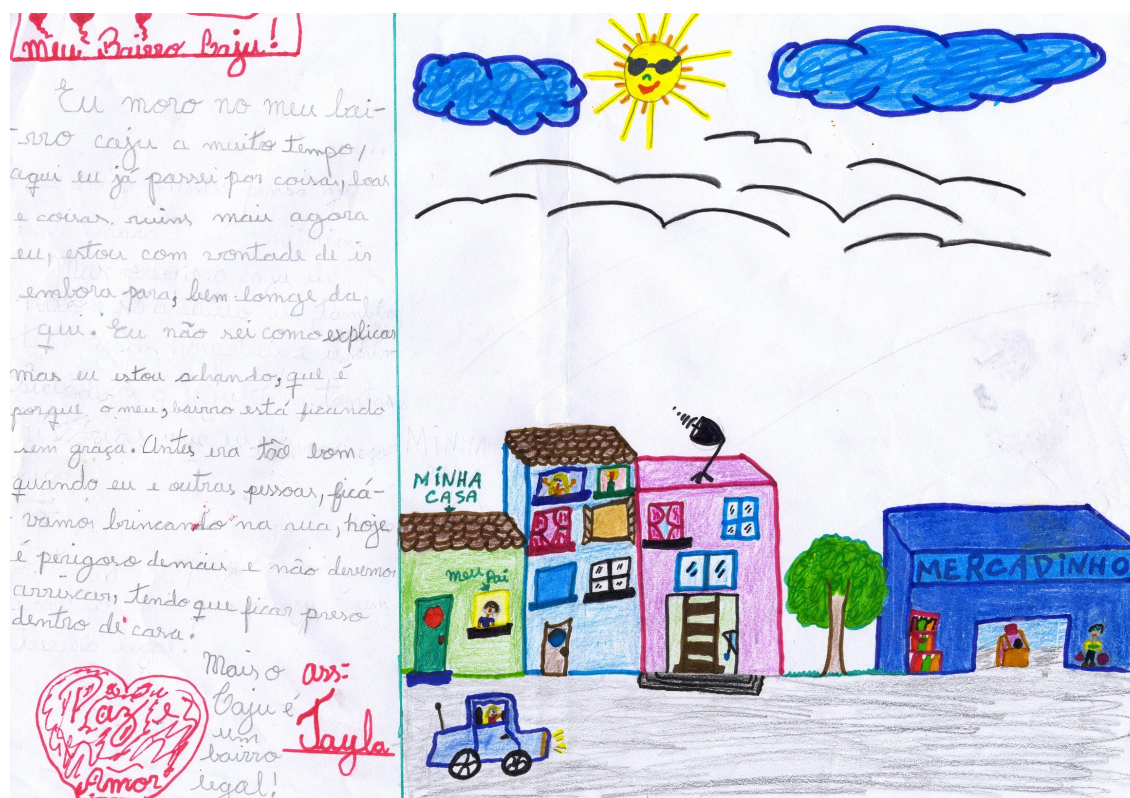 Meu Bairro Caju!
Eu moro no meu bai-
-rro caju a muito tempo,
aqui eu já passei por coisas, boas
e coisas ruins mais agora
eu, estou com vontade de ir
embora para, bem longe da
qui. Eu não sei como explicar
mas eu estou achando, que é
porque o meu, bairro está ficando
sem graça. Antes era tão bom
quando eu e outras pessoas, ficá-
vamos brincando na rua, hoje
é perigoso demais e não devemos
arriscar, tendo que ficar preso
dentro de casa.
Mais o
Caju é
um
bairro
legal!
ass:
Tayla
Paz e
Amor
MINHA
CASA
meu Pai
MERCADINHO